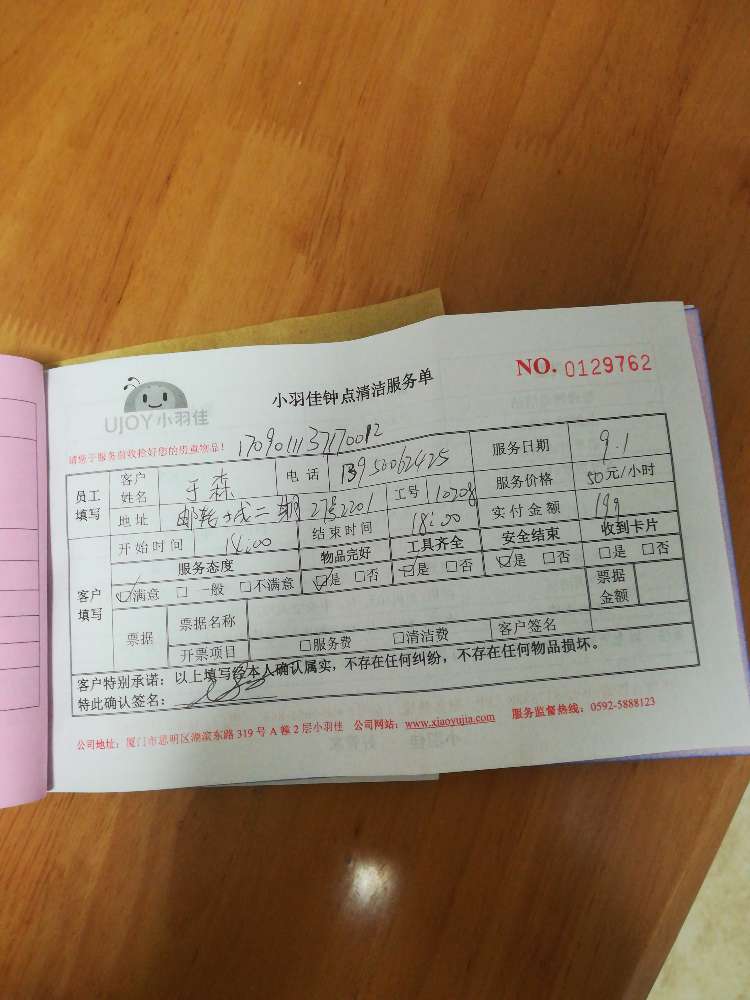 UJOY小羽佳
小羽佳钟点清洁服务单
NO. 0129762
请您于服务前收捡好您的贵重物品！
员工填写 客户姓名 于森 电话 13950062425 服务日期 9.1
地址 二期27号2201 工号 10208 服务价格 50元/小时
客户填写 开始时间 14:00 结束时间 18:00 实付金额 199
服务态度 物品完好 工具齐全 安全结束 收到卡片
☑满意 □一般 □不满意 ☑是 □否 ☑是 □否 ☑是 □否 □是 □否
票据 票据名称 票据金额
开票项目 □服务费 □清洁费 客户签名
客户特别承诺：以上填写经本人确认属实，不存在任何纠纷，不存在任何物品损坏。
特此确认签名：
公司地址：厦门市思明区湖滨东路 319 号 A 幢 2 层小羽佳 公司网站：www.xiaoyujia.com 服务监督热线：0592-5888123